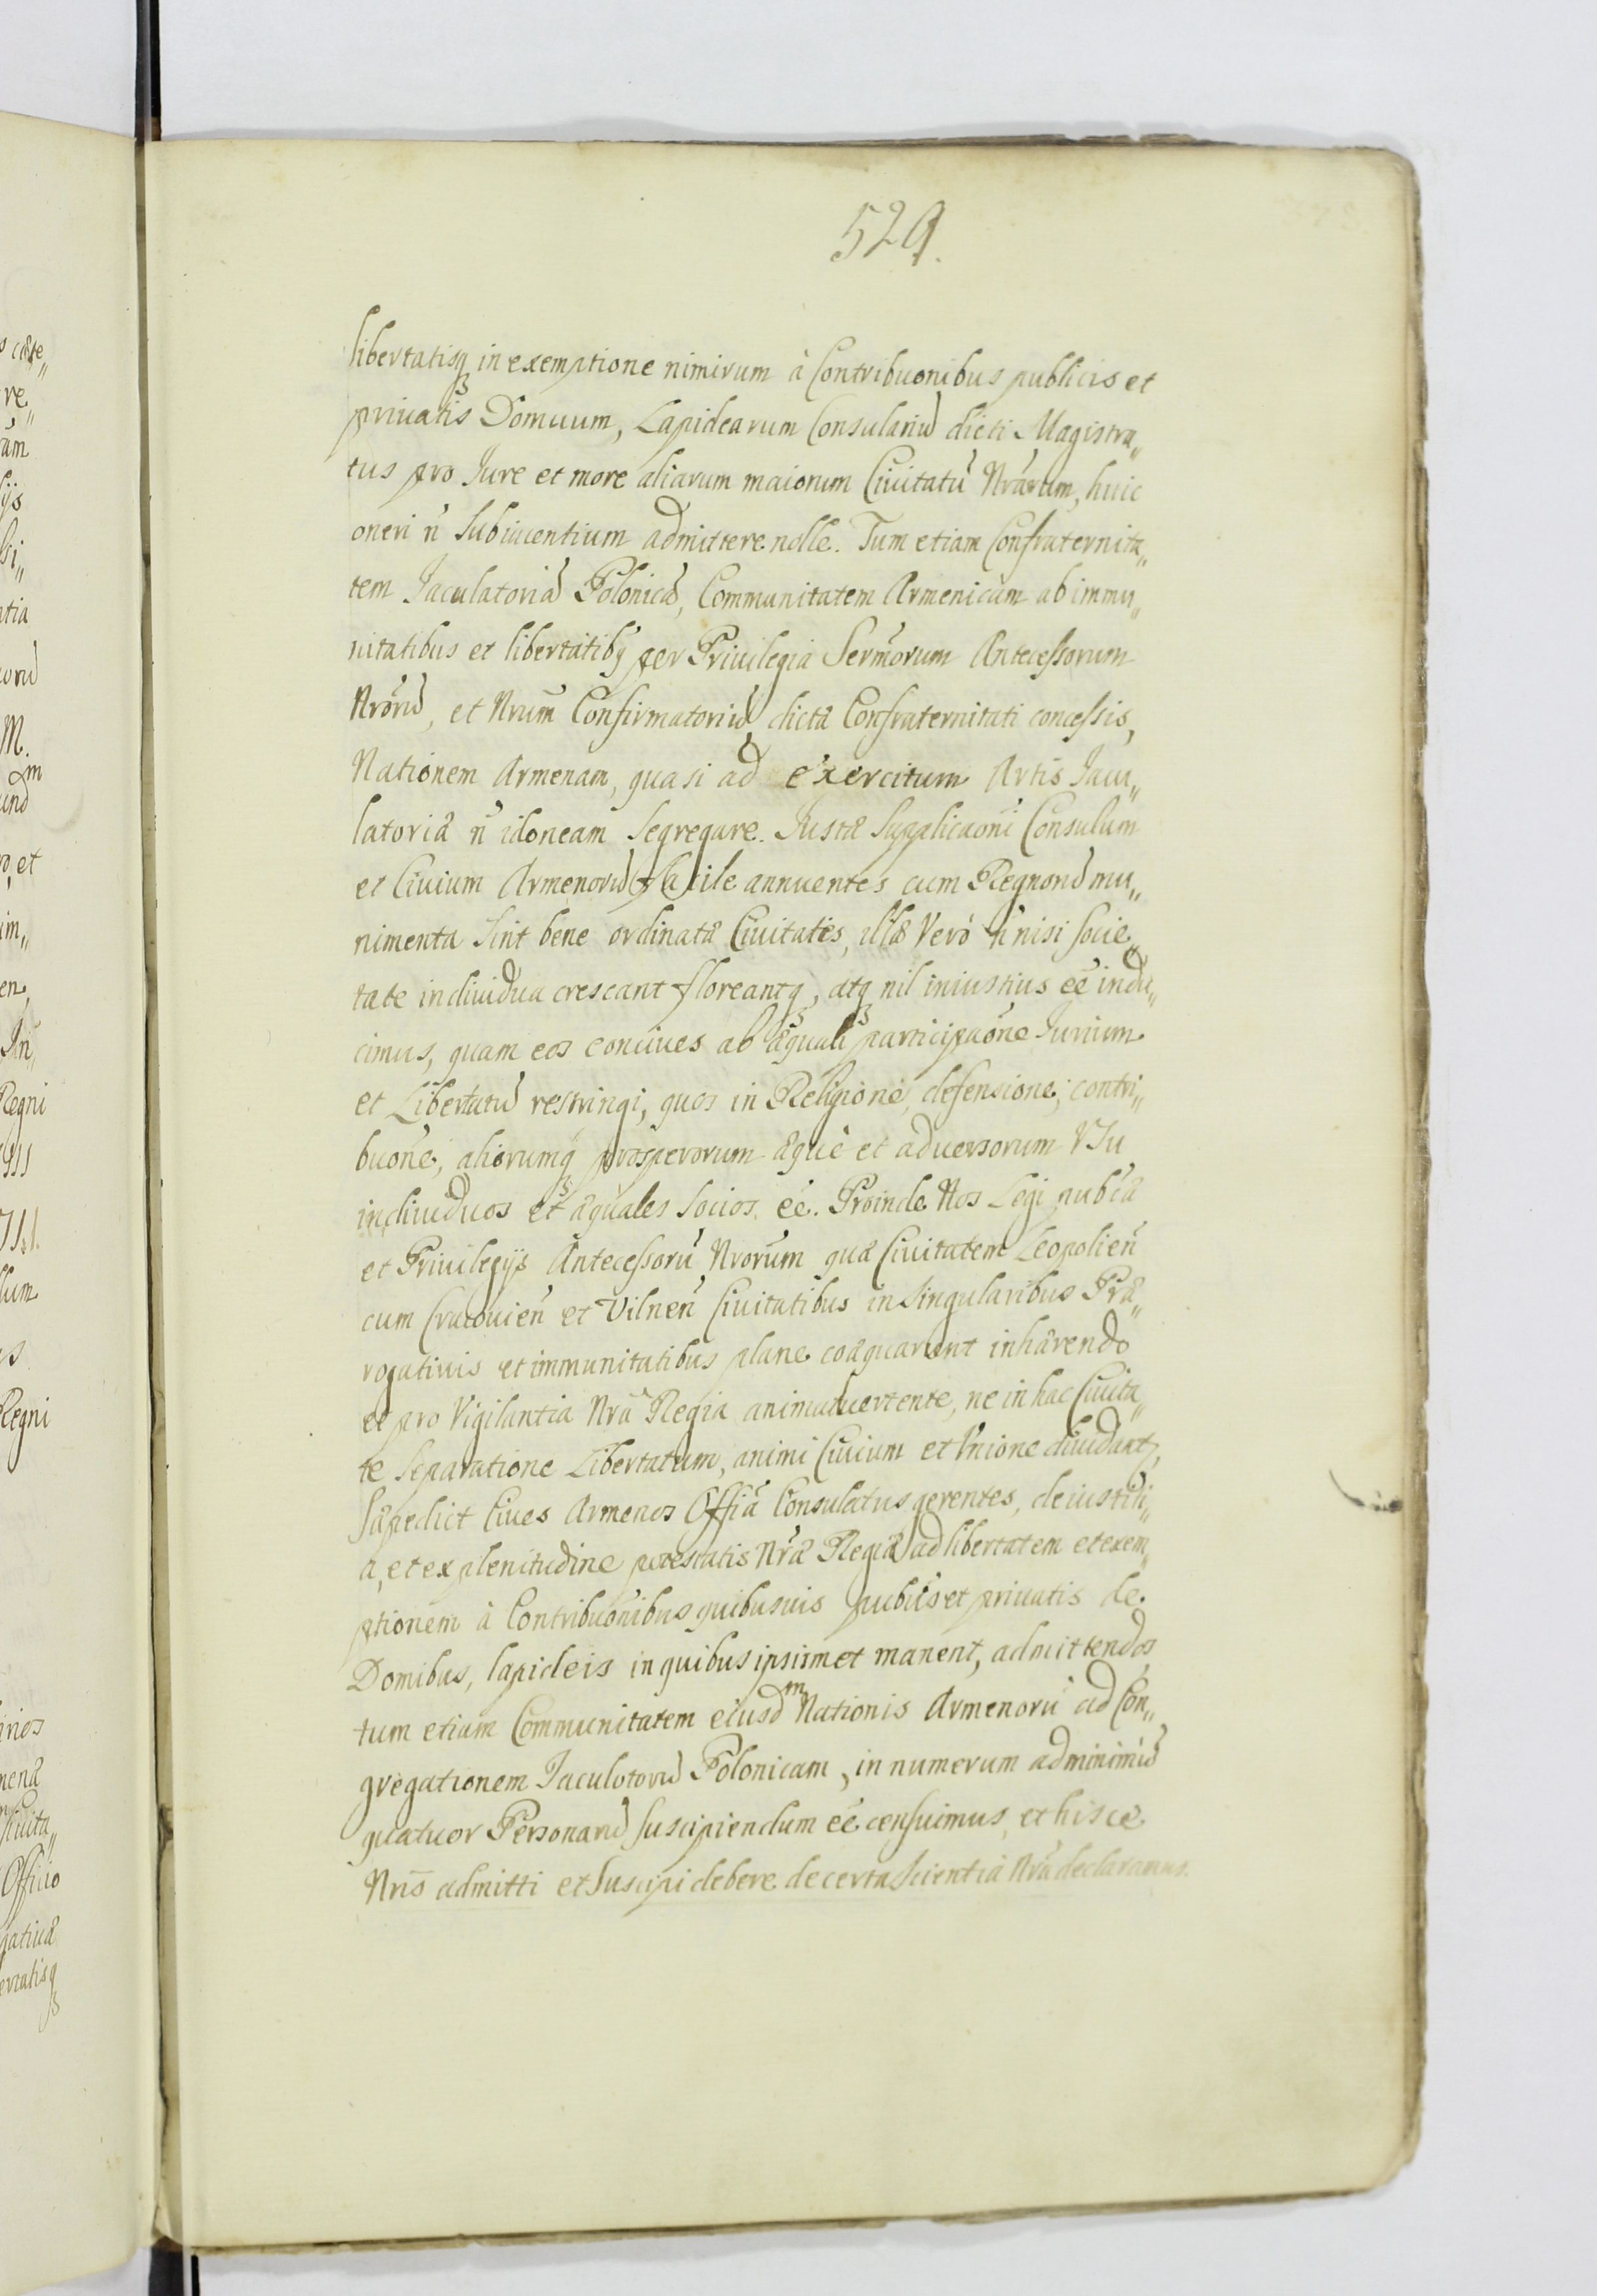 529.
libertatisq in exemptione nimirum à Contribuonibus publicis et
priuatis Domuum, Lapidearum Consulariũ dicti Magistra„
tus pro Jure et more aliarum maiorum Ciuitatũ Nrãrum, huic
oneri ñ Subiacentium admittere nolle. Tum etiam Confraternita„
tem Jaculatoriã Polonicã, Communitatem Armenicam ab immu„
nitatibus et libertatibq per Priuilegia Sermõrum Antecessorum
Nrõrũ, et Nrum̃ Confirmatoriũ, dictæ Confraternitati concessis,
Nationem Armenam, quasi ad exercitum Artis Jacu„
latoriæ ñ idoneam Segregare. Justæ Supplicaõni Consulum
et Ciuium Armenorũ facile annuentes cum Regnorũ mu„
nimenta Sint bene ordinatæ Ciuitates, illæ Verò ñ nisi Socie„
tate indiuidua crescant floreantq, atq nil iniustius eẽ indu„
cimus, quam eos conciues ab æquali participaõne Jurium
et Libertatũ restringi, quos in Religione, defensione, contri„
buõne, aliorumq prosperorum æquè et aduersorum VSu
indiuiduos et æquales Socios eẽ. Proinde Nos Legi pubcæ
et Priuilegijs Antecessorũ Nrorum quæ Ciuitatem Leopolieñ
cum Cracouieñ et Vilneñ Ciuitatibus in Singularibus Præ„
rogatiuis et immunitatibus plane coæquarunt inhærendo
et pro Vigilantia Nrã Regia animaduertente, ne in hac Ciuita„
te Separatione Libertatum, animi Ciuium et Vnione diuidant,
Sæpedict Ciues Armenos Offiã Consulatus gerentes, de iustiti„
a, et ex plenitudine potestatis Nræ Regiæ ad libertatem et exem„
ptionem à Contribuõnibus quibusuis pubcis et priuatis de
Domibus, lapideis in quibus ipsimet manent, admittendos
tum etiam Communitatem eiusdm Nationis Armenorũ ad Con„
gregationem Jaculotorũ Polonicam, in numerum ad minimũ
quatuor Personarũ Suscipiendum eẽ censuimus, et hisce
Nris̃ admitti et Suscipi debere de certa Scientia Nrã declaramus.